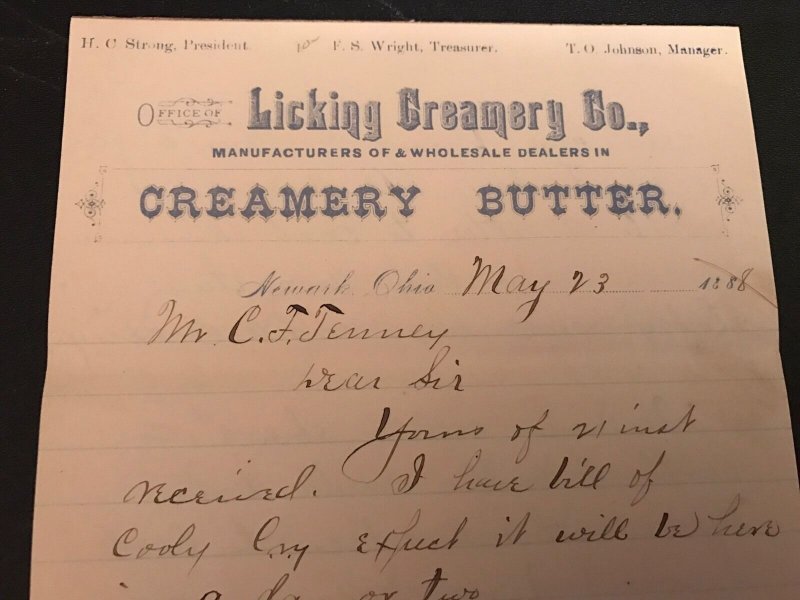 H. C. Strong, President. F. S. Wright, Treasurer. T. O. Johnson, Manager.
OFFICE OF Licking Creamery Co.,
MANUFACTURERS OF & WHOLESALE DEALERS IN
CREAMERY BUTTER.
Newark, Ohio May 23 1888
Mr C. F. Tenney
Dear Sir
Yours of 21 inst
received. I have bill of
Cooly Cry expect it will be here
in a day or two